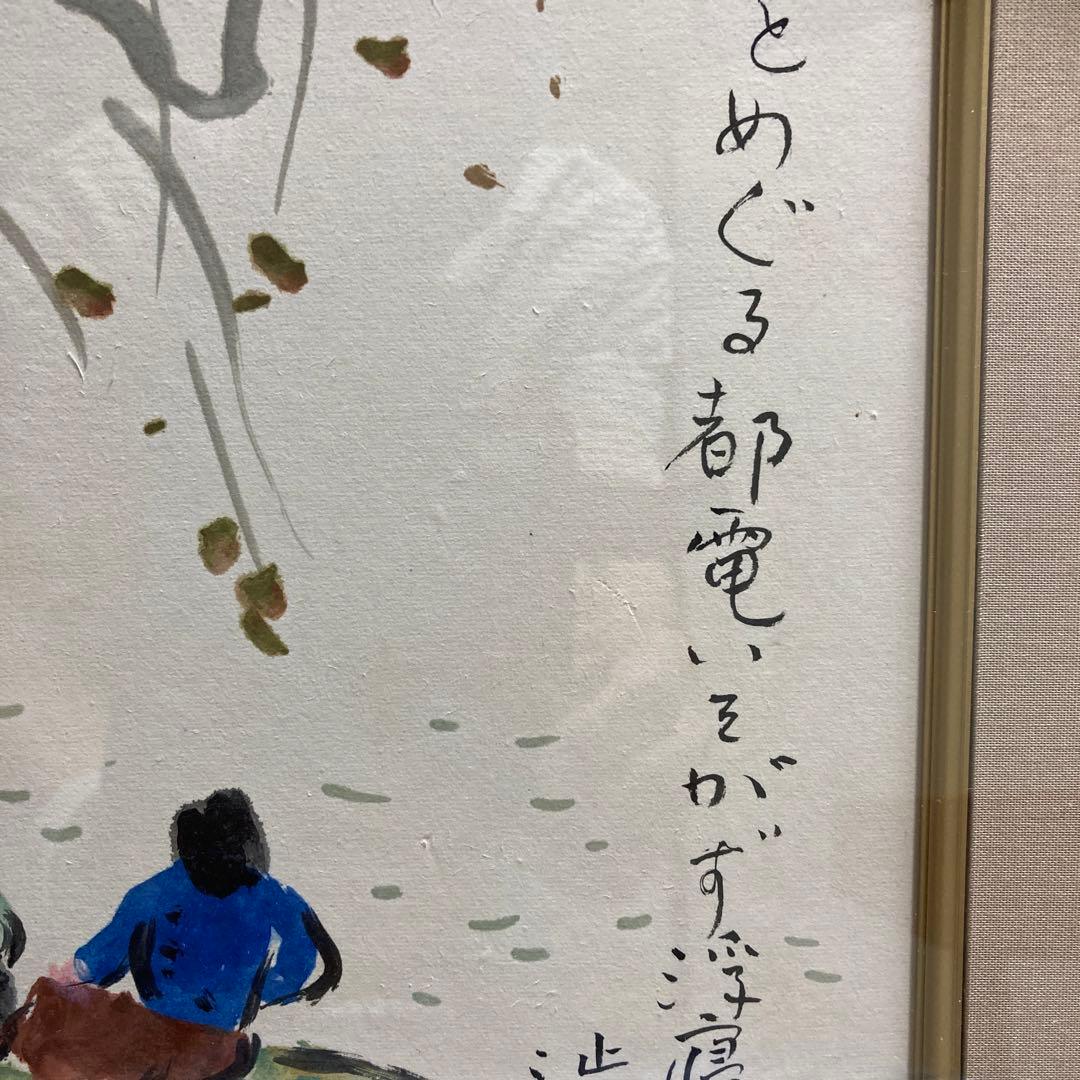 とめぐる都電いそがず浮寝
渋